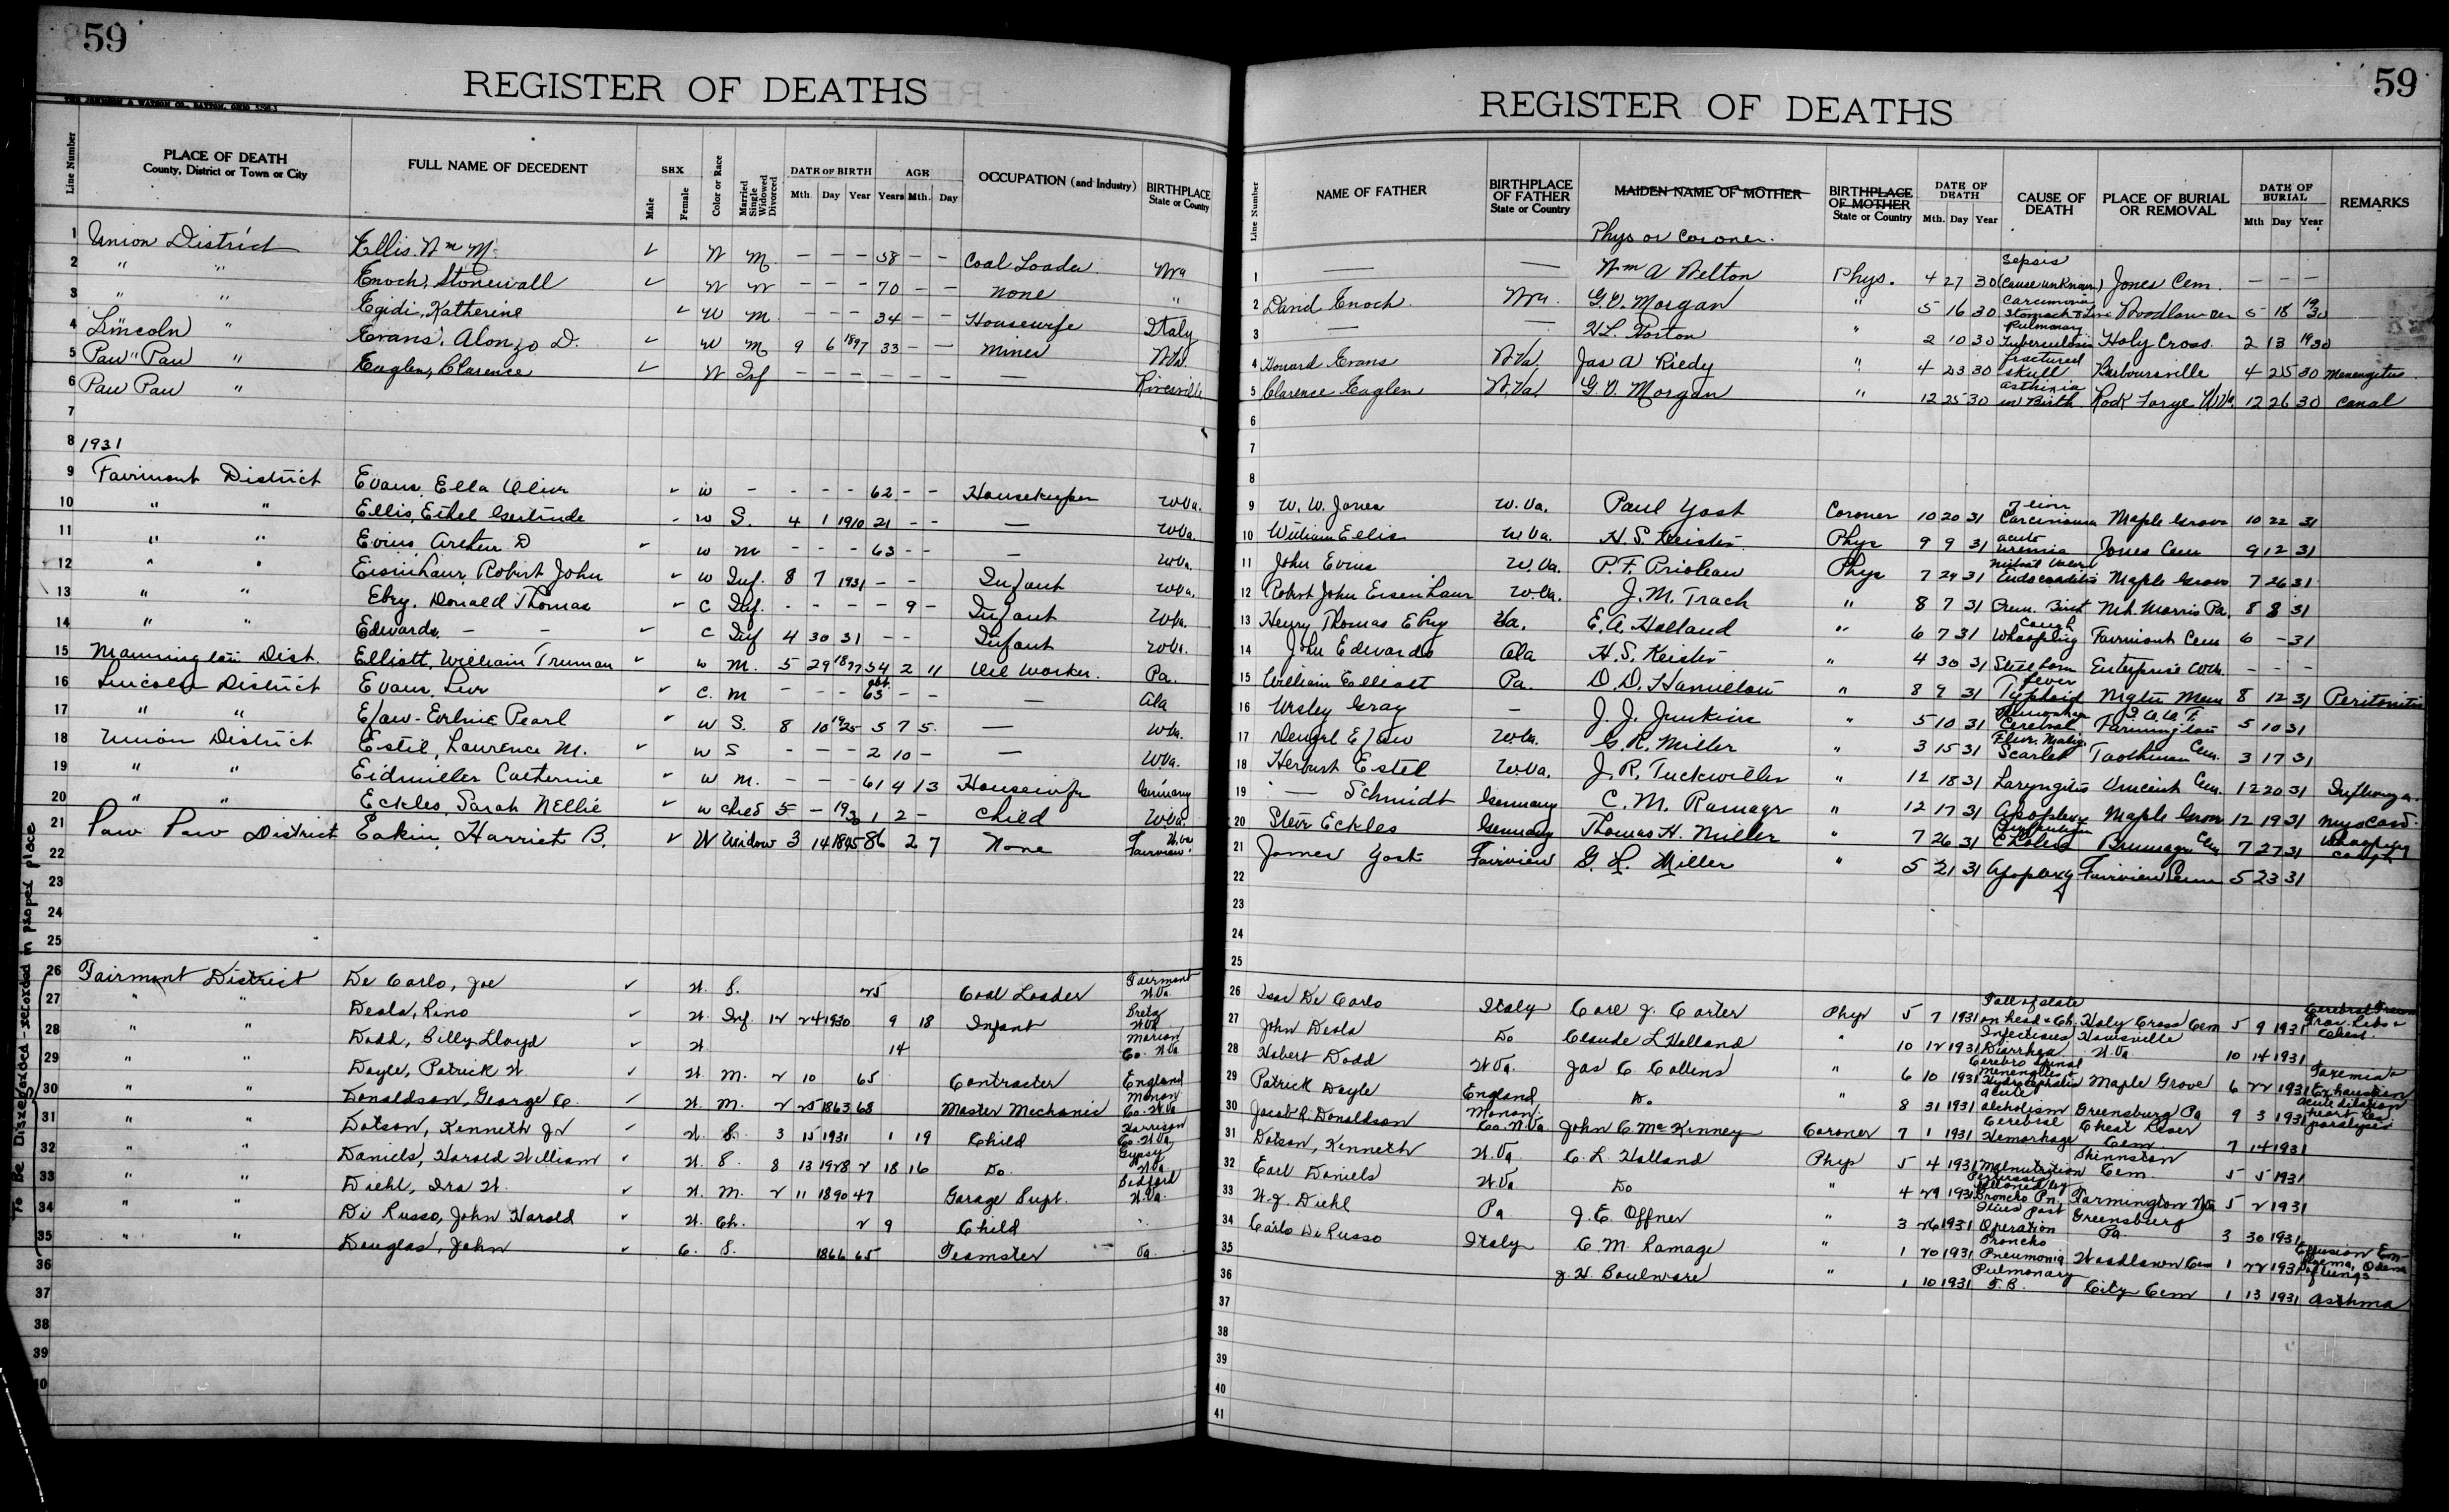 59
REGISTER OF DEATHS
Line Number PLACE OF DEATH County, District or Town or City FULL NAME OF DECEDENT SEX Male Female Color or Race Married Single Widowed Divorced DATE OF BIRTH Mth. Day Year AGE Years Mth. Day OCCUPATION (and Industry) BIRTHPLACE State or Country
1 Union District Ellis, Wm M. ✓ W M — — — 58 — — Coal Loader Wva
2 " " Enoch, Stonewall ✓ W W — — — 70 — — None "
3 " " Egidi, Katherine ✓ W M — — — 34 — — Housewife Italy
4 Lincoln " Evans, Alonzo D. ✓ W M 9 6 1897 33 — — Miner W.Va.
5 Paw Paw " Eaglen, Clarence ✓ W Inf — — — — — — — Rivesville
6 Paw Paw "
7
8 1931
9 Fairmont District Evans, Ella Olive ✓ W - - - - 62 - - Housekeeper W.Va.
10 " " Ellis, Ethel Gertrude - W S. 4 1 1910 21 - - — W.Va.
11 " " Evins, Arthur D ✓ W M - - - 63 - - — W.Va.
12 " " Eisenhaur, Robert John ✓ W Inf. 8 7 1931 - - Infant W.Va.
13 " " Ebry, Donald Thomas ✓ C Inf. - - - - 9 - Infant W.Va.
14 " " Edwards, - - ✓ C Inf 4 30 31 - - Infant W.Va.
15 Mannington Dist. Elliott, William Truman ✓ W M. 5 29 1877 54 2 11 Oil Worker. Pa.
16 Lincoln District Evans, ✓ C. M - - - abt. 63 - - — Ala
17 " " Efaw - Pearl ✓ W S. 8 10 1925 5 7 5. — W.Va.
18 Union District Estil, Laurence M. ✓ W S - - - 2 10 - — W.Va.
19 " " Eidmiller Catherine ✓ W M. - - - 61 4 13 Housewife Germany
20 " " Eckles, Sarah Nellie ✓ W Child 5 - 1930 1 2 - Child W.Va.
21 Paw Paw District Eakin, Harriet B. ✓ W Widow 3 14 1845 86 2 7 None Fairview W.Va
22
23
24
25
To Be Disregarded - recorded in proper place
26 Fairmont District De Carlo, Joe ✓ W. S. 25 Coal Loader Fairmont W.Va.
27 " " Deola, Rino ✓ W. Inf. 12 24 1930 9 18 Infant W.Va
28 " " Dodd, Billy Lloyd ✓ W 14 Marion Co. W.Va
29 " " Doyle, Patrick W. ✓ W. M. 2 10 65 Contractor England
30 " " Donaldson, George C. ✓ W. M. 2 25 1863 68 Master Mechanic Monon. Co. W.Va
31 " " Dotson, Kenneth Jr ✓ W. S. 3 15 1931 1 19 Child Harrison Co. W.Va.
32 " " Daniels, Harold William ✓ W. S. 8 13 1928 2 18 16 Do. Gypsy W.Va
33 " " Diehl, Ira W. ✓ W. M. 2 11 1890 47 Garage Supt. Bedford W.Va.
34 " " Di Russo, John Harold ✓ W. Ch. 2 9 Child
35 " " Douglas, John ✓ C. S. 1866 65 Teamster Va.
36
37
38
39
40
59
REGISTER OF DEATHS
Line Number NAME OF FATHER BIRTHPLACE OF FATHER State or Country MAIDEN NAME OF MOTHER BIRTHPLACE OF MOTHER State or Country DATE OF DEATH Mth. Day Year CAUSE OF DEATH PLACE OF BURIAL OR REMOVAL DATE OF BURIAL Mth Day Year REMARKS
Phys or Coroner.
1 — — Wm A Welton Phys. 4 27 30 Sepsis (Cause unknown) Jones Cem. — — —
2 David Enoch. Wva. G.V. Morgan " 5 16 30 Carcinoma Stomach & Liver Woodlawn Cem 5 18 1930
3 — — H.L. Horton " 2 10 30 Pulmonary Tuberculosis Holy Cross. 2 13 1930
4 Howard Evans W.Va. Jas A Riedy " 4 23 30 fractured skull Barboursville 4 25 30 Menengitus
5 Clarence Eaglen W.Va. G.V. Morgan " 12 25 30 asthinia in Birth Rock Forge W.Va. 12 26 30 Canal
6
7
8
9 W. W. Jones W.Va. Paul Yost Coroner 10 20 31 Carcinoma Maple Grove 10 22 31
10 William Ellis W.Va. H.S. Keister Phys 9 9 31 acute uremia Jones Cem 9 12 31
11 John Evins W.Va. P.F. Prioleau Phys 7 24 31 Endocarditis Maple Grove 7 26 31
12 Robert John Eisenhaur W.Va. J.M. Trach " 8 7 31 Prem. Birth Mt. Morris Pa. 8 8 31
13 Henry Thomas Ebry Va. E.A. Holland " 6 7 31 Whooping Cough Fairmont Cem 6 - 31
14 John Edwards Ala H.S. Keister " 4 30 31 Still born Enterprise W.Va. - - -
15 William Elliott Pa. D.D. Hamilton " 8 9 31 Typhoid Fever Mgtn Mem 8 12 31 Peritonitis
16 Wesley Gray - J.J. Jenkins " 5 10 31 Cerebral Farmington 5 10 31
17 Denzel Efaw W.Va. G.R. Miller " 3 15 31 Scarlet Fever Malig. Toothman Cem. 3 17 31
18 Herbert Estel W.Va. J.R. Tuckwiller " 12 18 31 Laryngitis Vincent Cem. 12 20 31 Influenza
19 — Schmidt Germany C.M. Ramage " 12 17 31 Apoplexy Maple Grove 12 19 31 Myocard.
20 Steve Eckles Germany Thomas H. Miller " 7 26 31 Cholera Brumage Cem 7 27 31 Whooping Cough
21 James Yost Fairview G.R. Miller " 5 21 31 Apoplexy Fairview Cem 5 23 31
22
23
24
25
26 De Carlo Italy Carl J. Carter Phys 5 7 1931 Fall of slate on head & Ch. Holy Cross Cem 5 9 1931 Cerebral Frac. Ribs & Chest.
27 John Deola Do Claude L Holland " 10 12 1931 Infectious Diarrhea W.Va 10 14 1931
28 Hobert Dodd W.Va. Jas C Collins " 6 10 1931 Cerebro Spinal Menengites Hydrocephalis Maple Grove 6 22 1931 Toxemia & Exhaustion
29 Patrick Doyle England Do. " 8 31 1931 Acute alcholism Greensburg Pa 9 3 1931 Acute dilation heart paralysis
30 Jacob R. Donaldson Monon. Co. W.Va John C McKinney Coroner 7 1 1931 Cerebral Hemorhage Cheat River Cem 7 14 1931
31 Dotson, Kenneth W.Va C.L. Holland Phys 5 4 1931 Malnutrition Shinnston Cem. 5 5 1931
32 Earl Daniels W.Va Do " 4 29 1931 Broncho Pn. Farmington W.Va 5 2 1931
33 W.J. Diehl Pa J.E. Offner " 3 26 1931 post Operation Greensburg Pa. 3 30 1931
34 Carlo Di Russo Italy C.M. Ramage " 1 20 1931 Broncho Pneumonia Woodlawn Cem 1 22 1931 Effusion of lungs
35 J.H. Boulware " 1 10 1931 Pulmonary T.B. City Cem 1 13 1931 Asthma
36
37
38
39
40
41